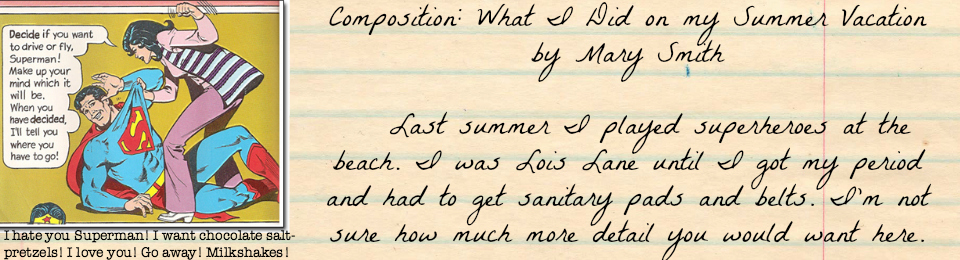 Decide if you want
to drive or fly,
Superman!
Make up your
mind which it
will be.
When you
have decided,
I'll tell you
where you
have to go!
I hate you Superman! I want chocolate salt-
pretzels! I love you! Go away! Milkshakes!
Composition: What I Did on my Summer Vacation
by Mary Smith
Last summer I played superheroes at the
beach. I was Lois Lane until I got my period
and had to get sanitary pads and belts. I'm not
sure how much more detail you would want here.